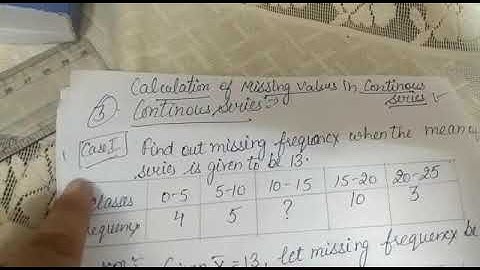 ③ Calculation of Missing Values in Continous series
Continous series:-
Case I Find out missing frequency when the mean of
series is given to be 13.
Classes 0-5 5-10 10-15 15-20 20-25
frequency 4 5 ? 10 3
Given X̄ = 13, let missing frequency be